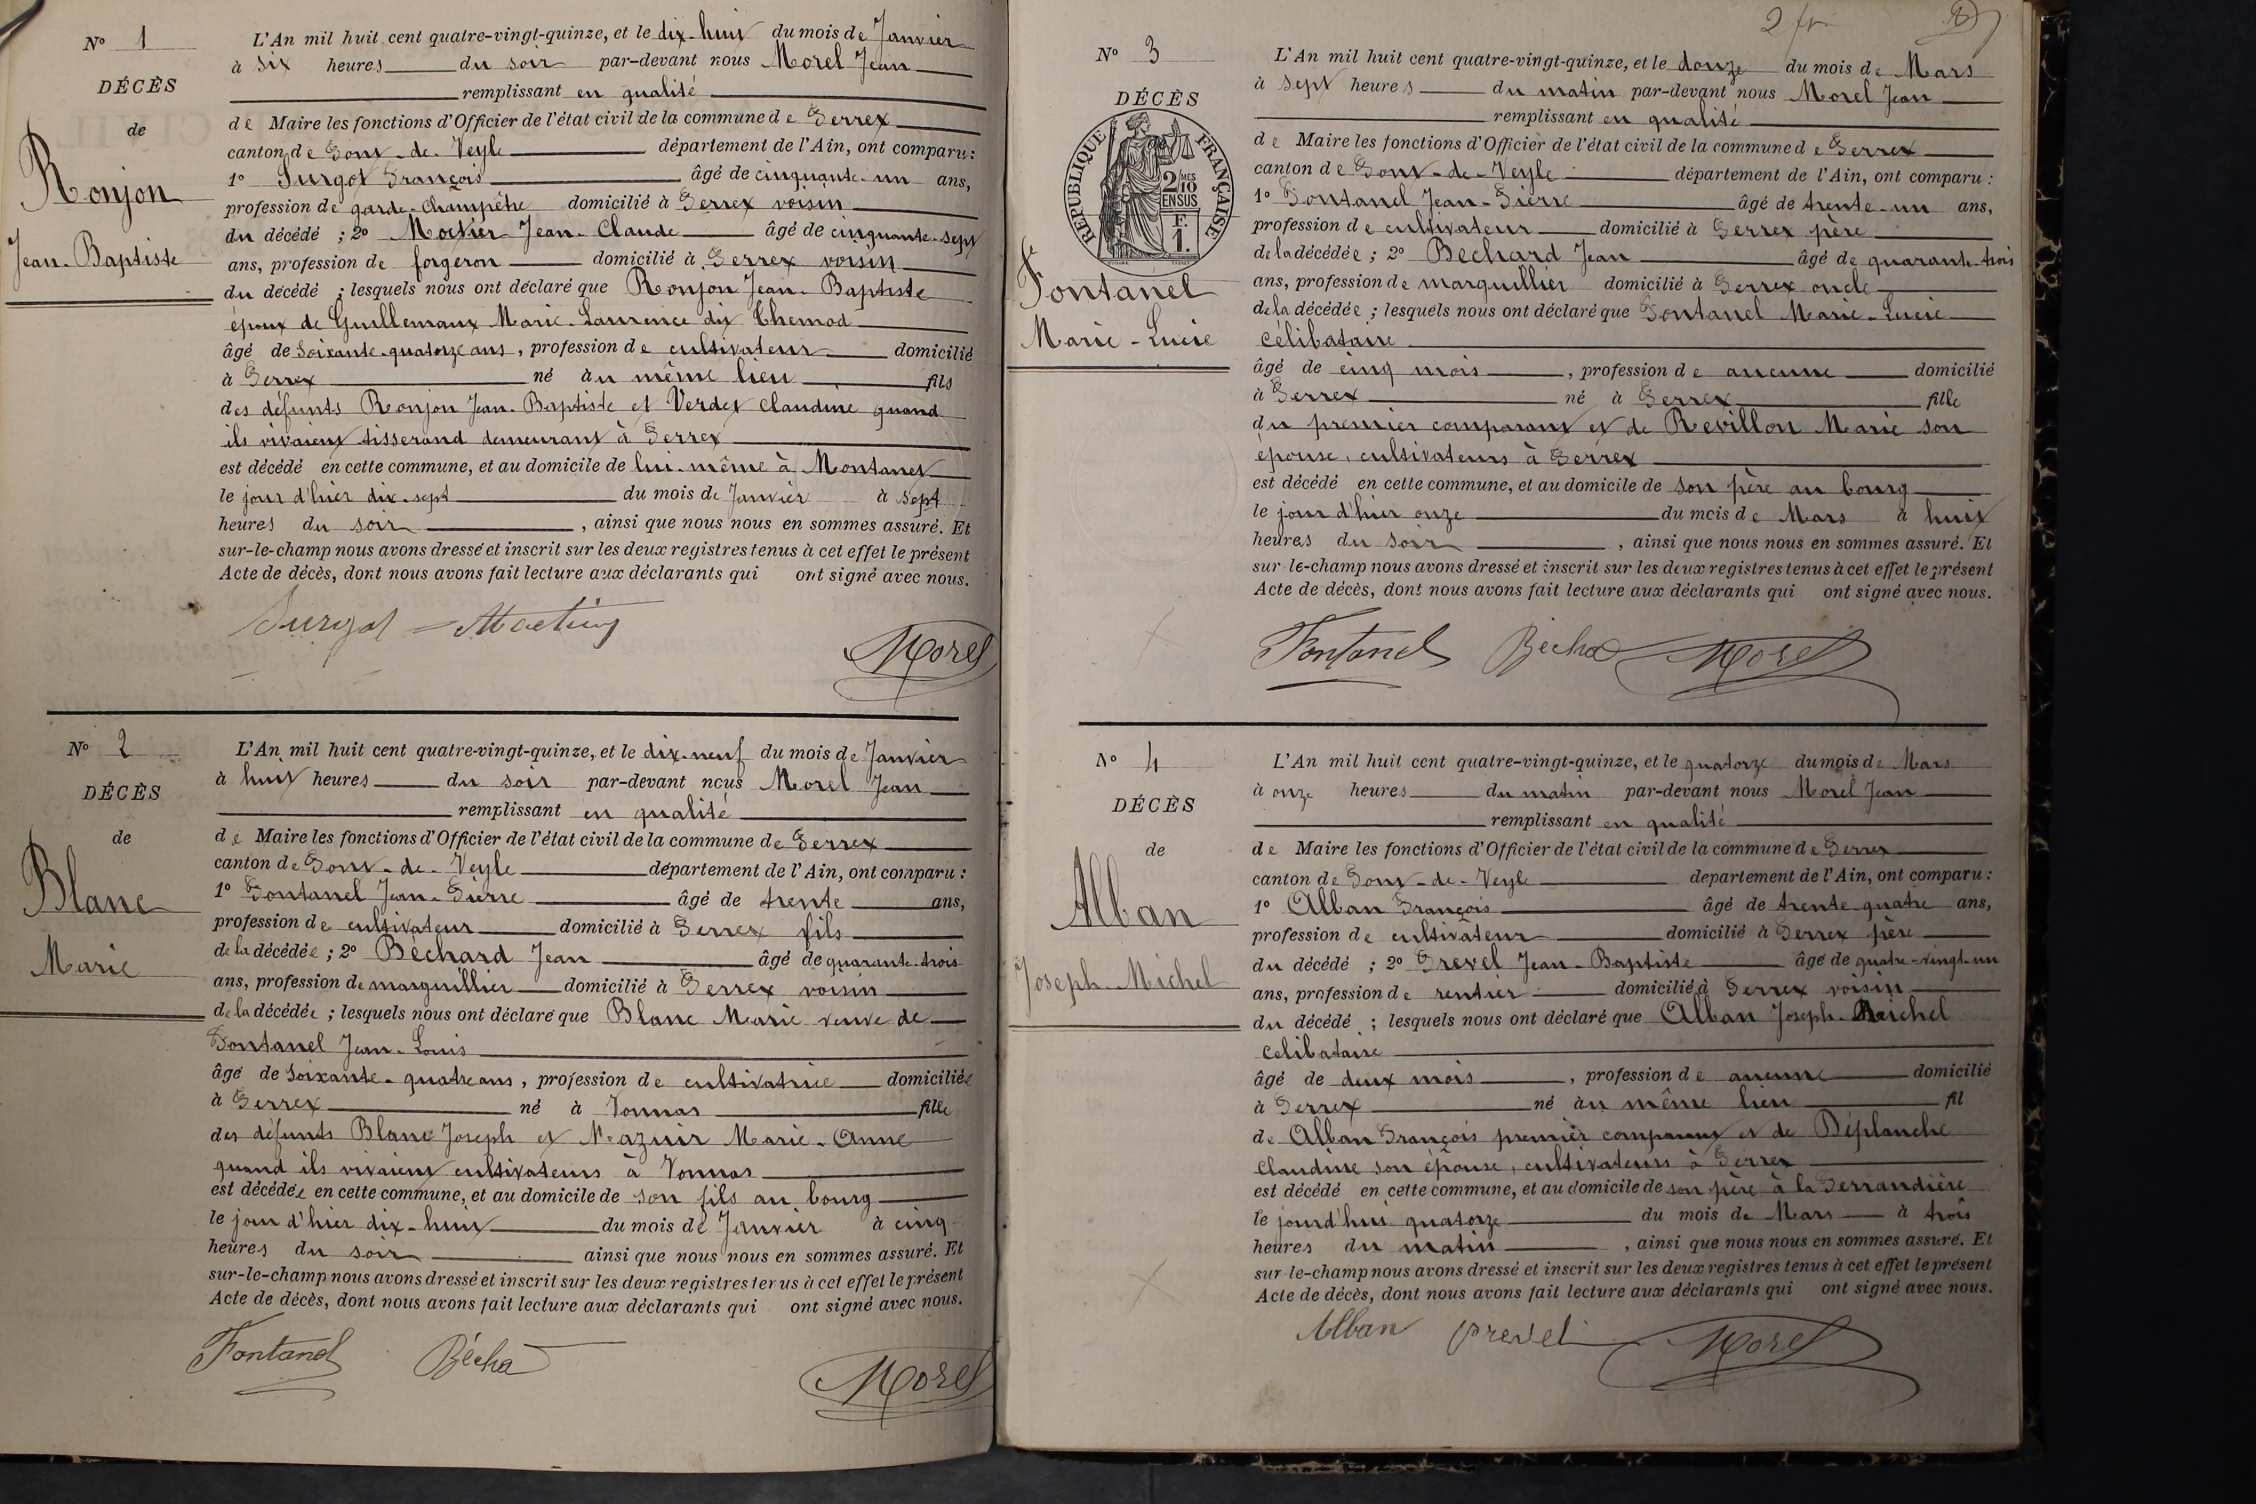 N° 1
DÉCÈS
de
Ronjon
Jean-Baptiste
L'An mil huit cent quatre-vingt-quinze, et le dix-huit du mois de Janvier
à six heures du soir par-devant nous Morel Jean
remplissant en qualité
de Maire les fonctions d'Officier de l'état civil de la commune de Perrex
canton de Pont-de-Veyle département de l'Ain, ont comparu :
1° Surgot François âgé de cinquante-un ans,
profession de garde-champêtre domicilié à Perrex voisin
du décédé ; 2° Jean-Claude âgé de cinquante-sept
ans, profession de forgeron domicilié à Perrex voisin
du décédé ; lesquels nous ont déclaré que Ronjon Jean-Baptiste
époux de Guillemaux Marie-Laurence dit Chemod
âgé de soixante-quatorze ans, profession de cultivateur domicilié
à Perrex né au même lieu fils
des défunts Ronjon Jean-Baptiste et Verdet Claudine quand
ils vivaient tisserand demeurant à Perrex
est décédé en cette commune, et au domicile de lui-même à Montanet
le jour d'hier dix-sept du mois de Janvier à sept
heures du soir, ainsi que nous nous en sommes assuré. Et
sur-le-champ nous avons dressé et inscrit sur les deux registres tenus à cet effet le présent
Acte de décès, dont nous avons fait lecture aux déclarants qui ont signé avec nous.
Surgot
Morel
N° 2
DÉCÈS
de
Blanc
Marie
L'An mil huit cent quatre-vingt-quinze, et le dix-neuf du mois de Janvier
à huit heures du soir par-devant nous Morel Jean
remplissant en qualité
de Maire les fonctions d'Officier de l'état civil de la commune de Perrex
canton de Pont-de-Veyle département de l'Ain, ont comparu :
1° Fontanel Jean-Pierre âgé de trente ans,
profession de cultivateur domicilié à Perrex fils
de la décédée ; 2° Béchard Jean âgé de quarante-trois
ans, profession de marguillier domicilié à Perrex voisin
de la décédée ; lesquels nous ont déclaré que Blanc Marie veuve de
Fontanel Jean-Louis
âgé de soixante-quatre ans, profession de cultivatrice domiciliée
à Perrex né à Vonnas fille
des défunts Blanc Joseph et Mazuir Marie-Anne
quand ils vivaient cultivateurs à Vonnas
est décédée en cette commune, et au domicile de son fils au bourg
le jour d'hier dix-huit du mois de Janvier à cinq
heures du soir ainsi que nous nous en sommes assuré. Et
sur-le-champ nous avons dressé et inscrit sur les deux registres tenus à cet effet le présent
Acte de décès, dont nous avons fait lecture aux déclarants qui ont signé avec nous.
Fontanel Bécha
Morel
2
N° 3
DÉCÈS
RÉPUBLIQUE FRANÇAISE
2/10 MES
EN SUS
F.
1.
Fontanel
Marie-Lucie
L'An mil huit cent quatre-vingt-quinze, et le douze du mois de Mars
à sept heures du matin par-devant nous Morel Jean
remplissant en qualité
de Maire les fonctions d'Officier de l'état civil de la commune de Perrex
canton de Pont-de-Veyle département de l'Ain, ont comparu :
1° Fontanel Jean-Pierre âgé de trente-un ans,
profession de cultivateur domicilié à Perrex père
de la décédée ; 2° Bechard Jean âgé de quarante-trois
ans, profession de marguillier domicilié à Perrex oncle
de la décédée ; lesquels nous ont déclaré que Fontanel Marie-Lucie
célibataire
âgé de cinq mois, profession de aucune domicilié
à Perrex né à Perrex fille
du premier comparant et de Revillon Marie son
épouse, cultivateurs à Perrex
est décédé en cette commune, et au domicile de son père au bourg
le jour d'hier onze du mois de Mars à huit
heures du soir, ainsi que nous nous en sommes assuré. Et
sur-le-champ nous avons dressé et inscrit sur les deux registres tenus à cet effet le présent
Acte de décès, dont nous avons fait lecture aux déclarants qui ont signé avec nous.
Fontanel Bécha Morel
N° 4
DÉCÈS
de
Alban
Joseph-Michel
L'An mil huit cent quatre-vingt-quinze, et le quatorze du mois de Mars
à onze heures du matin par-devant nous Morel Jean
remplissant en qualité
de Maire les fonctions d'Officier de l'état civil de la commune de Perrex
canton de Pont-de-Veyle département de l'Ain, ont comparu :
1° Alban François âgé de trente-quatre ans,
profession de cultivateur domicilié à Perrex père
du décédé ; 2° Prevel Jean-Baptiste âgé de quatre-vingt-un
ans, profession de rentier domicilié à Perrex voisin
du décédé ; lesquels nous ont déclaré que Alban Joseph-Michel
celibataire
âgé de deux mois, profession de aucune domicilié
à Perrex né au même lieu fil
de Alban François premier comparant et de Déplanche
Claudine son épouse, cultivateurs à Perrex
est décédé en cette commune, et au domicile de son père à la Perrandière
le jourd'hui quatorze du mois de Mars à trois
heures du matin, ainsi que nous nous en sommes assuré. Et
sur-le-champ nous avons dressé et inscrit sur les deux registres tenus à cet effet le présent
Acte de décès, dont nous avons fait lecture aux déclarants qui ont signé avec nous.
Alban Prevel Morel